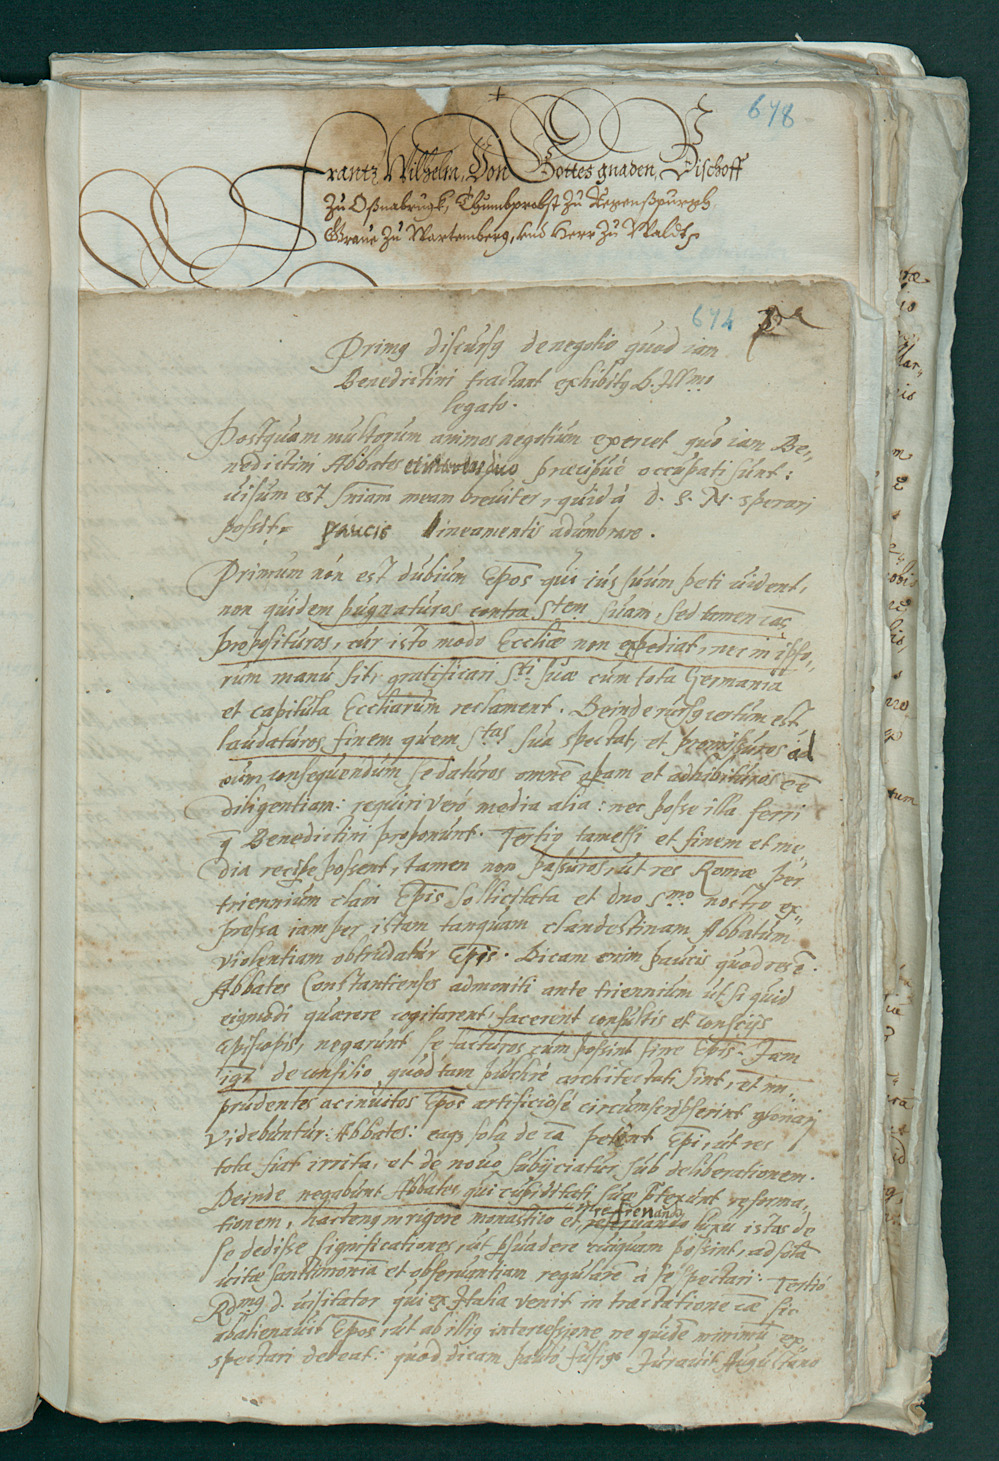 678
Frantz Wilhelm, Von Gottes gnaden, Bischoff
Zu Oßnabrugk, Thumbprobst Zu Regenßpurgh
Graue Zu Wartemberg, und Herr Zu Waldt
674
Primg discursg de negotio quod iam
Benedictini tractant exhibitg D. Illmo
legato.
Postquam multorum animos negotium exercet quo iam Be-
nedictini Abbates præcipuè occupati sunt:
uisum est sniam meam breuiter, quid à d. S. M. sperari
possit, paucis lineamentis adumbrare.
Primum nón est dubium Epos qui ius suum peti uident,
non quidem pugnaturos contra Stem suam, sed tamen cās
proposituros, cur isto modo Eccliæ non expediat, nec in ipso,,
rum manu sit, gratificari Sti suæ cum tota Germania
et capitula Eccliarum reclament. Deinde rursg certum est
laudaturos finem quem Stas sua spectat, et promissuros ad
eum consequendum se daturos omnē opam et adhibituros oē
diligentiam: requiri verò media alia: nec posse illa ferri
q̄ Benedictini proponunt. Tertio tametsi et finem et me,,
dia recipe possent, tamen non passuros, ut res Romæ per
triennium clam Epis sollicitata et dno Smo nostro ex,,
pressa iam per istam tanquam clandestinam Abbatum
violentiam obtrudatur Epis. Dicam enim paucis quod res ē.
Abbates Constantienses admoniti ante triennium ut si quid
eigmodi quærere cogitarent, facerent consultis et conscijs
Episcopis, negarunt se facturos cum possint sine Epis. Iam
igr de consilio quod tam pulchrè architectati sint, et im,,
prudentes ac inuitos Epos artificiosè circumscripserint gloriari
videbuntur Abbates: eaqs sola de cā petent Epi, ut res
tota fiat irrita, et de nouo subijciatur sub deliberationem.
Deinde negabunt Abbates qui cupiditati suæ ptexunt reforma,,
tionem, hacteng in rigore monastico et in refrenando luxu istas de
se dedisse significationes, ut psuadere cuiquam possint, ad solā
uitæ sanctimoniā et obseruantiam regularē à se spectari. Tertiò
Rdmg d. uisitator qui ex Italia venit in tractatione cæ sic
abalienauit Epos, ut ab illig intercessione ne quidē minimū ex,,
spectari debeat: quod dicam paulò fusigs Iurauit Augustano